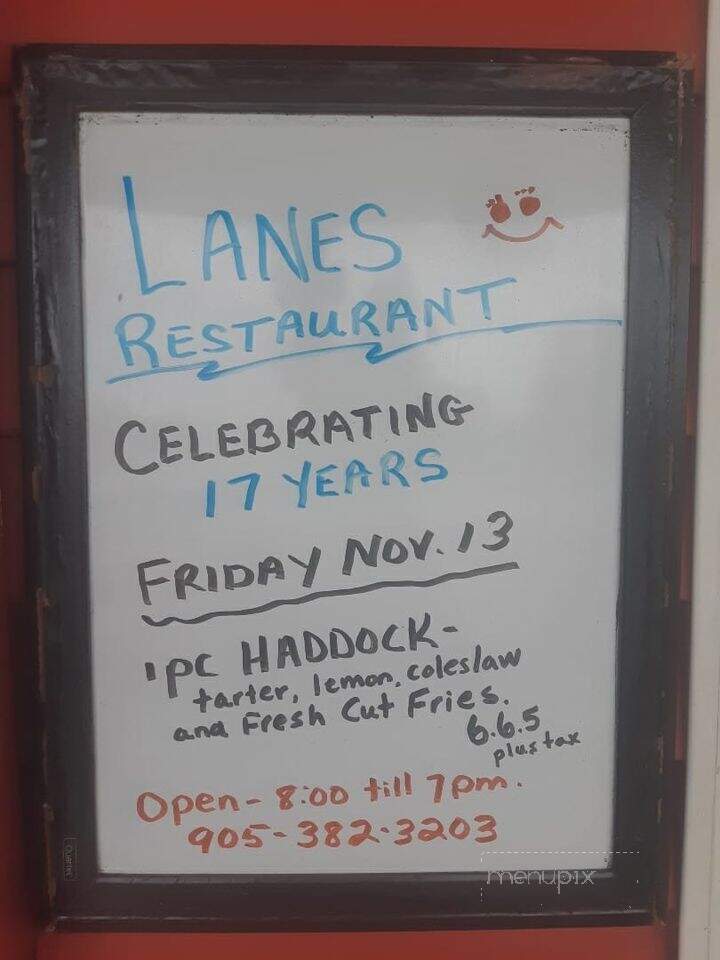 LANES
RESTAURANT
CELEBRATING
17 YEARS
FRIDAY NOV. 13
1PC HADDOCK-
tarter, lemon, coleslaw
and Fresh Cut Fries.
6.6.5
plus tax
Open - 8:00 till 7pm.
905-382-3203
menupix
Quartet